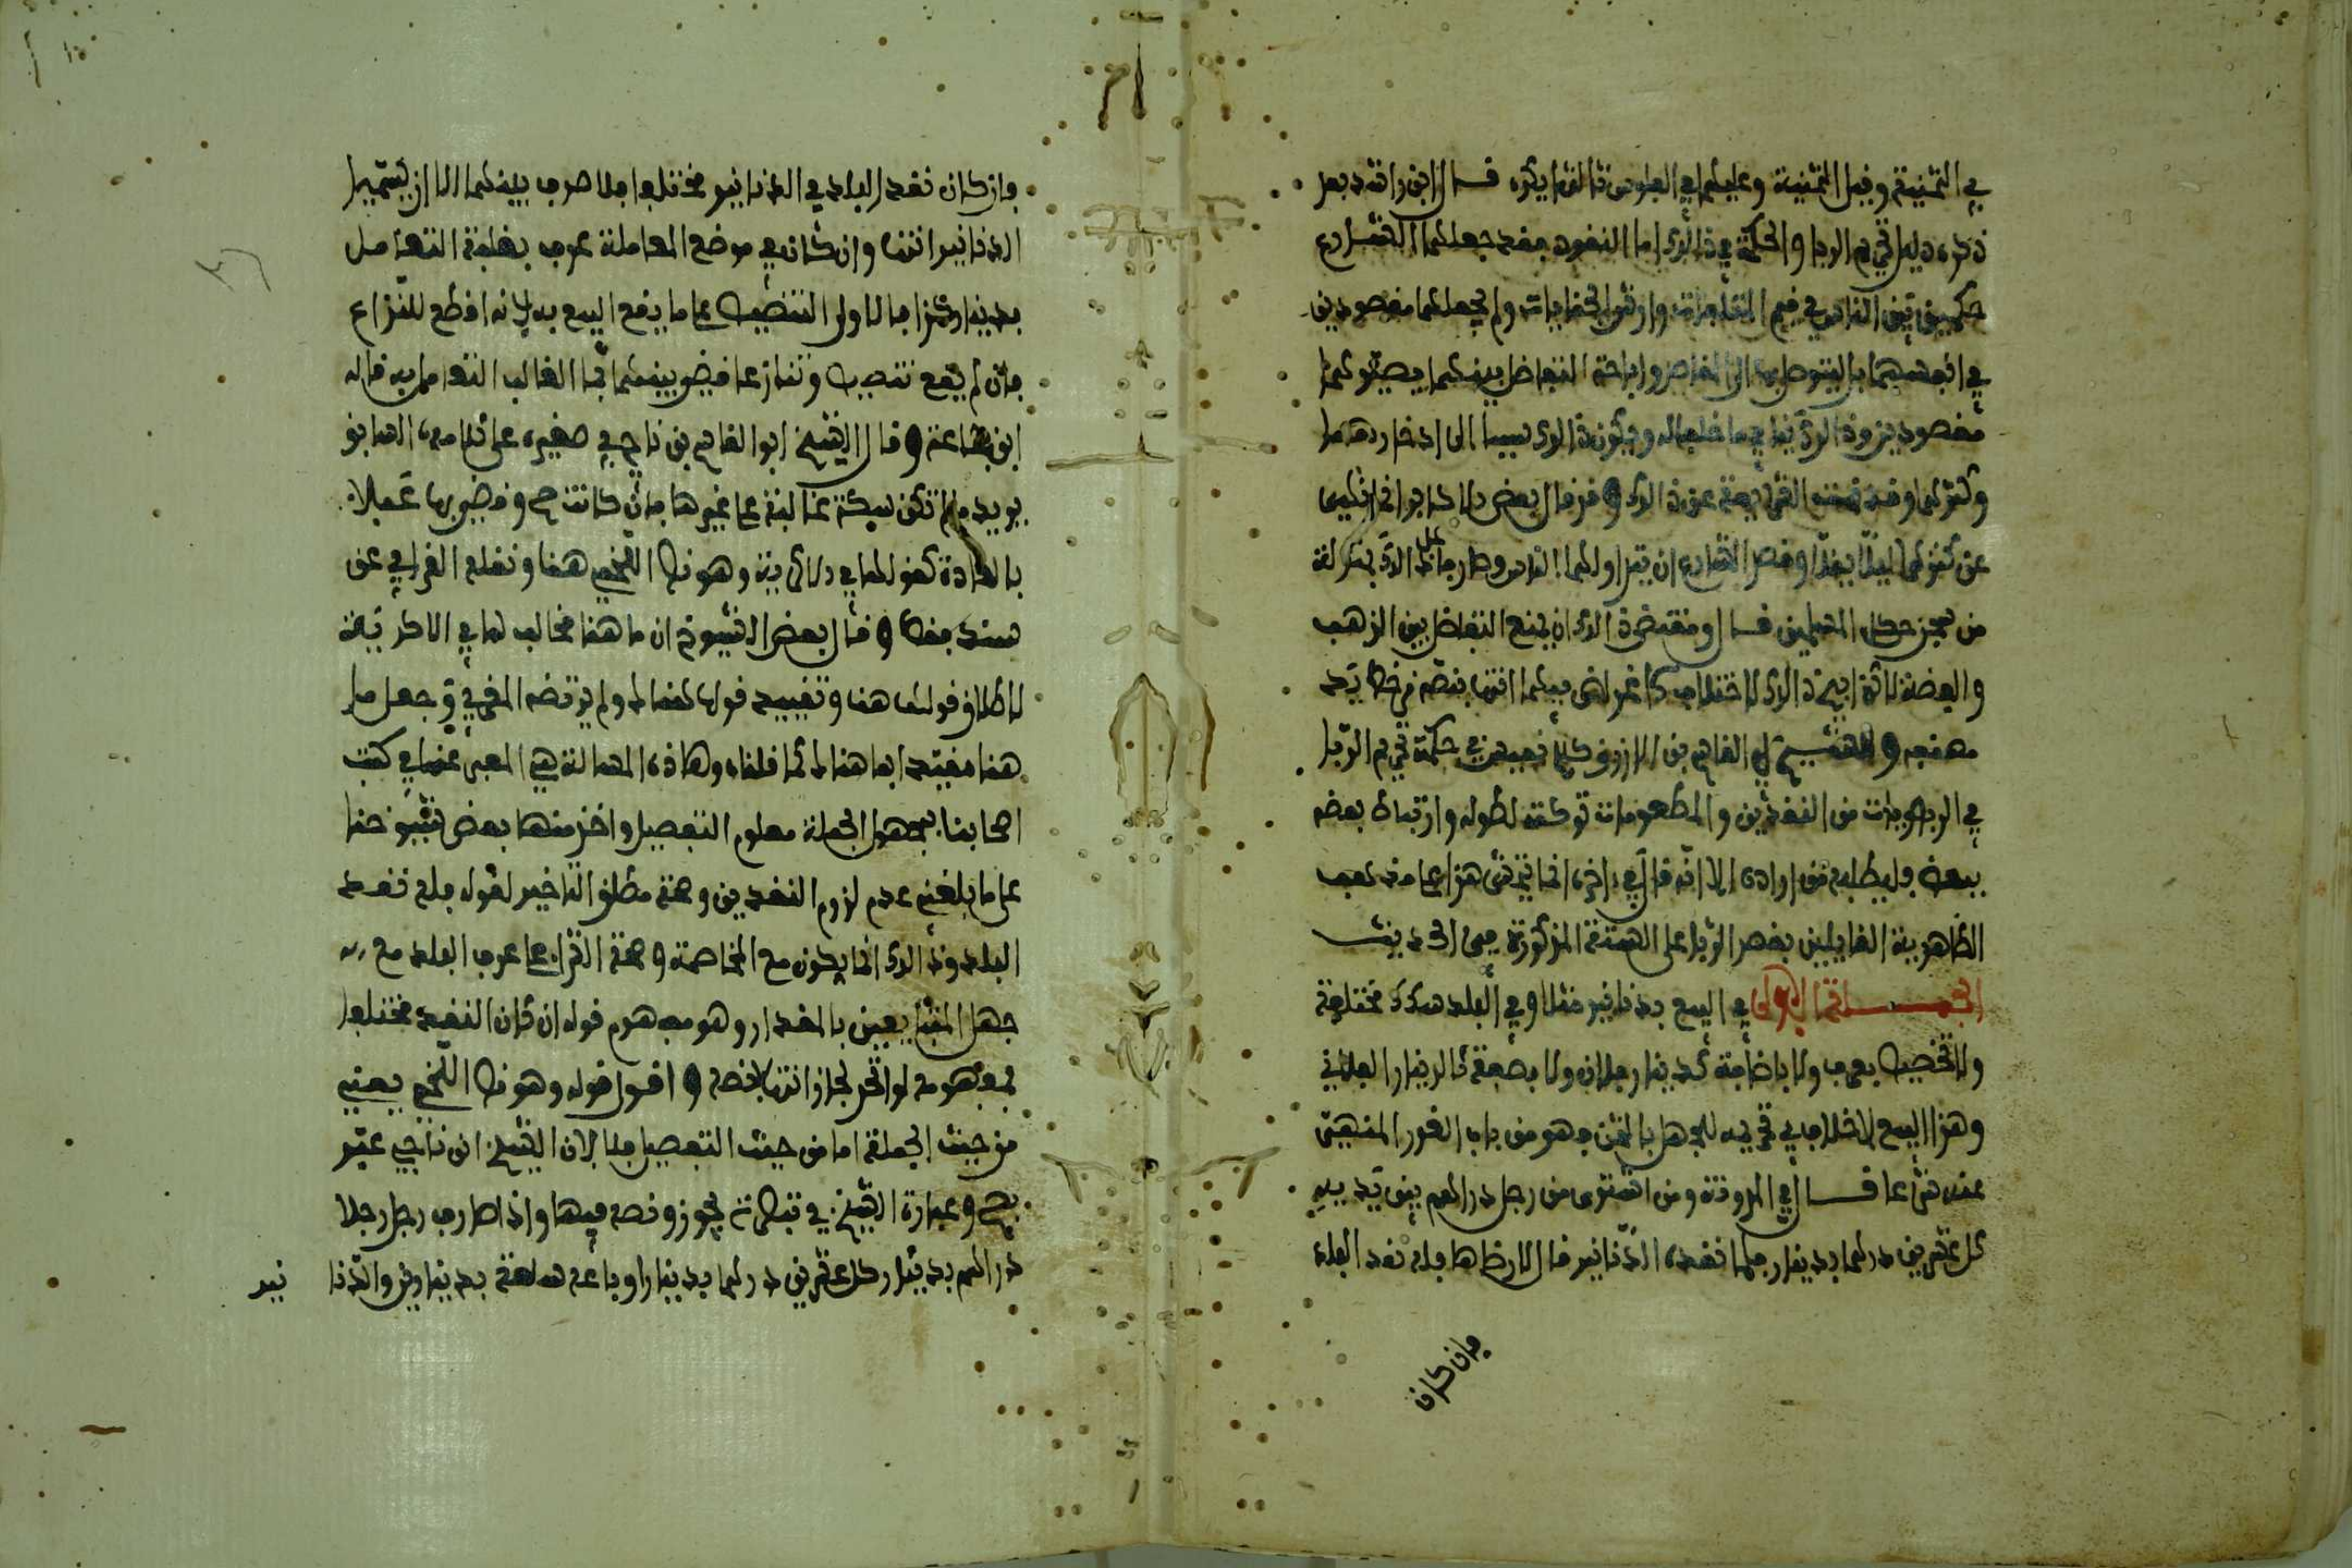 في الثمنية وقيل الثمنية وعليهما في الفلوس ثالثها يكره قال ابن راشد بعد
ذكره دليل تحريم الربا والحكمة في ذلك اما النقود فقد جعلهما الشارع
حكمين بين الناس في قيم المتلفات وأروش الجنايات ولم يجعلهما مقصودين
في انفسهما بل ليتوصل بهما الى المقاصد وإباحة التفاضل بينهما يصيرهما
مقصودين وذلك ينافي ما خلقا له ويكون ذلك سببا الى ادخارهما
وكنزهما وقد نهت الشريعة عن ذلك وقد قال بعض الاكابر انما نهى
عن كنزهما ليلا يفقدا وقصد الشارع ان يتداولهما الناس وصار مانع ذلك بمنزلة
من سجن حكم المسلمين قال ومقتضى ذلك ان يمنع التفاضل بين الذهب
والفضة لاكن ابيح ذلك لاختلاف الاغراض فيهما انتهى بنصه من خط يد
مصنفه وللشيخ ابي القاسم بن الازرق كلام نفيس في حكمة تحريم الربا
في الربويات من النقدين والمطعومات تركته لطوله وارتباط بعضه
ببعض فليطلبه من اراده الا انه قال في اخره انما يتمشى هذا على مذهب
الظاهرية القايلين بقصر الربا على الستة المذكورة في الحديث
المسألة الاولى في البيع بدنانير مثلا وفي البلد سكك مختلفة
ولا تخصيص بعرف ولا باضافة كدينار فلان ولا بصفة كالدينار الفلاني
وهذا البيع لا خلاف في تحريمه للجهل بالثمن فهو من باب الغرر المنهي
عنه شرعا قال في المدونة ومن اشترى من رجل دراهم بين يديه
كل عشرين درهما بدينار فلما نقده الدنانير قال لا ارضاها فله نقد البلد
وان كان
فان كان نقد البلد في الدنانير مختلفا فلا صرف بينهما الا ان يسميا
الدنانير انتهى وان كان في موضع المعاملة عرف بغلبة التعامل
بدينار كذا فالاولى التنصيص على ما يقع البيع به لانه اقطع للنزاع
فان لم يقع تنصيص وتنازعا قضي بينهما بالغالب التعامل به قاله
ابن جماعة وقال الشيخ ابو القاسم بن ناجي في صغيره على كلامه السابق
يريد ما لم تكن سكة غالبة على غيرها فان كانت صح وقضي بها عملا
بالعادة كقولها في الاكرية وهو نص اللخمي هنا ونقله القرافي عن
سند فقط وقال بعض الشيوخ ان ما هنا مخالف لما في الاكرية
لاطلاق قولها هنا وتقييد قولها هنالك ولم يرتضه المغربي وجعل ما
هنا مقيدا بما هنالك لما قلناه وهاذه المسالة هي المعبر عنها في كتب
اصحابنا بمجهول الجملة معلوم التفصيل واخذ منها بعض شيوخنا
على ما بلغني عدم لزوم النقدين وصحة مطلق التاخير لقوله فله نقد
البلد وذلك انما يكون مع المخاصمة وصحة الشراء على عرف البلد مع
جهل المتبايعين بالمقدار وهو مفهوم قوله ان كان النقد مختلفا
فمفهومه لو اتحد لجاز انتهى بنصه و اقول قوله وهو نص اللخمي يعني
من حيث الجملة اما من حيث التفصيل فلا لان الشيخ ابن ناجي عبر
بصح وعبارة الشيخ في تبصرته يجوز ونصه فيها واذا صارف رجل رجلا
دراهم بدينار كل عشرين درهما بدينار او باعه سلعة بدينارين والدنا
نير